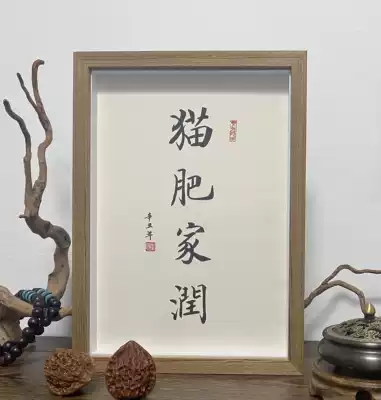 猫肥家潤
辛丑年